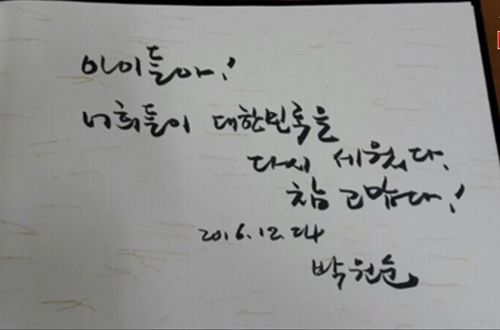 아이들아!
너희들이 대한민국을
다시 세웠다.
참 고맙다!
2016.12.24
박원순